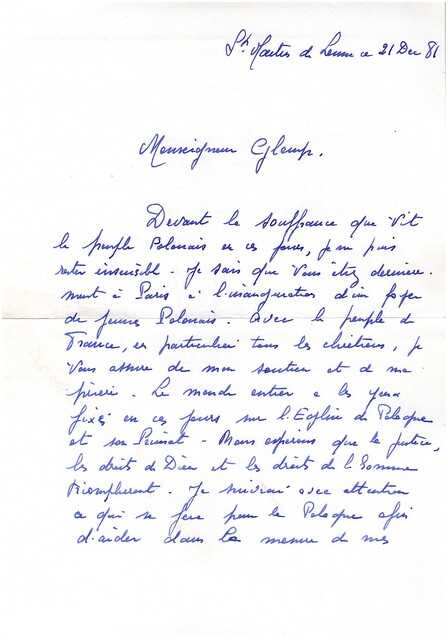 St Martin de Lenne ce 21 Dec 81
Monseigneur Glemp.
Devant la souffrance que vit
le peuple Polonais en ces jours, je ne puis
rester insensible - Je sais que Vous étiez dernière
ment à Paris à l'inauguration d'un foyer
de jeunes Polonais. Avec le peuple de
France, en particulier tous les chrétiens, je
Vous assure de mon soutien et de ma
prière. Le monde entier a les yeux
fixés en ces jours sur l'Eglise de Pologne
et son Primat - Nous espérons que la justice,
les droits de Dieu et les droits de l'homme
triompheront. Je suivrai avec attention
ce qui se fera pour la Pologne afin
d'aider dans la mesure de mes